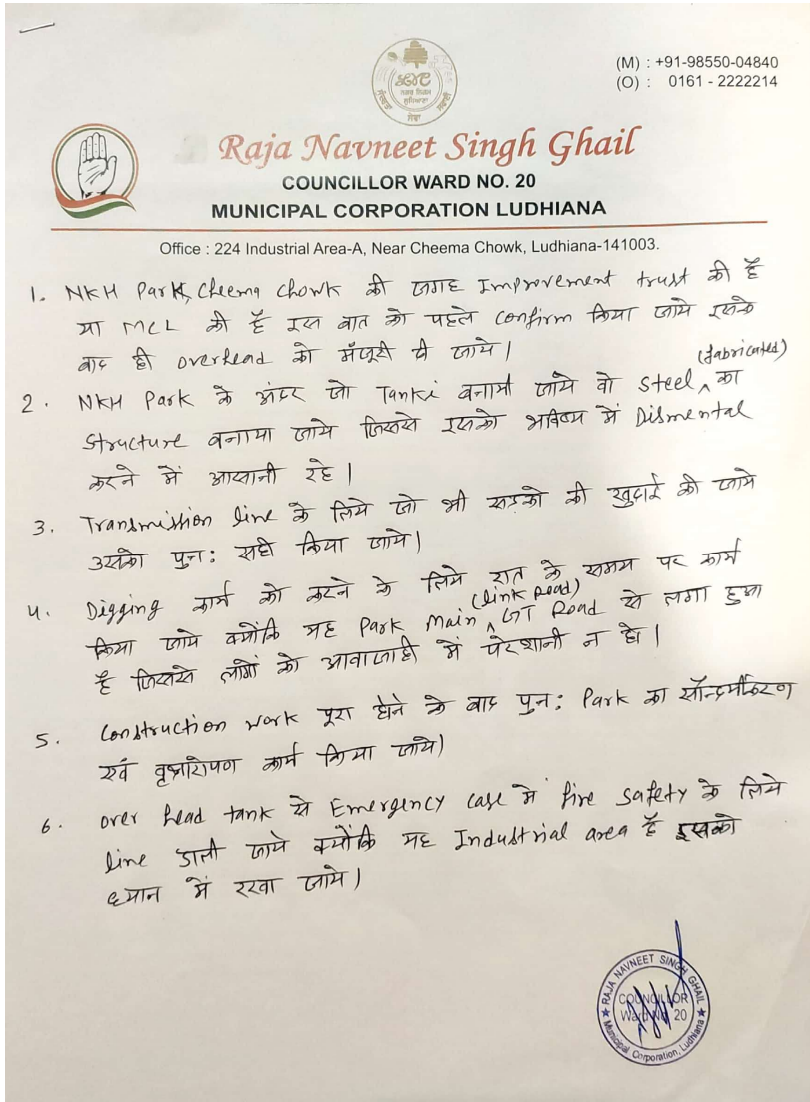 ਨਗਰ ਨਿਗਮ
ਲੁਧਿਆਣਾ
ਸੇਵਾ
(M) : +91-98550-04840
(O) : 0161 - 2222214
Raja Navneet Singh Ghail
COUNCILLOR WARD NO. 20
MUNICIPAL CORPORATION LUDHIANA
Office : 224 Industrial Area-A, Near Cheema Chowk, Ludhiana-141003.
1. NKH Park, Cheema Chowk की जगह Improvement trust की है
या MCL की है इस बात को पहले confirm किया जाये इसके
बाद ही overhead को मंजूरी दी जाये।
(fabricated)
2. NKH Park के अंदर जो Tanki बनायी जाये वो Steel ^ का
Structure बनाया जाये जिससे इसको भविष्य में Dismental
करने में आसानी रहे।
3. Transmission line के लिये जो भी सड़को की खुदाई की जाये
उसको पुन: सही किया जाये।
4. Digging कार्य को करने के लिये रात के समय पर कार्य
(link Road)
किया जाये क्योंकि यह Park Main ^ GT Road से लगा हुआ
है जिससे लोगों को आवाजाही में परेशानी न हो।
5. Construction work पूरा होने के बाद पुन: Park का सौन्दर्यीकरण
एवं वृक्षारोपण कार्य किया जाये।
6. over head tank से Emergency case में fire safety के लिये
line डाली जाये क्योंकि यह Industrial area है इसको
ध्यान में रखा जाये।
RAJA NAVNEET SINGH GHAIL
COUNCILLOR
Ward No. 20
Municipal Corporation, Ludhiana